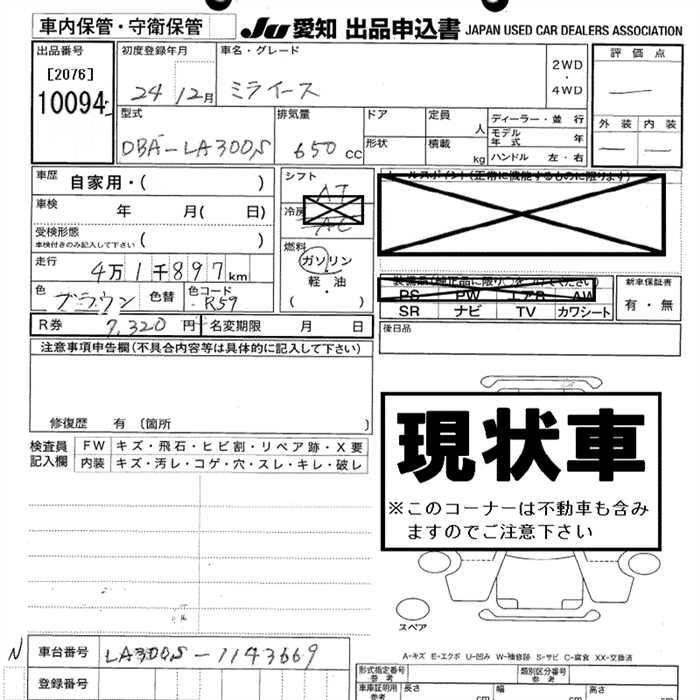 車内保管・守衛保管
JU 愛知 出品申込書 JAPAN USED CAR DEALERS ASSOCIATION
出品番号
[2076]
10094
初度登録年月
24 12月
車名・グレード
ミライース
2WD
・
4WD
評価点
外装 内装
型式
DBA-LA300S
排気量
650 cc
ドア
形状
定員
人
積載
kg
ディーラー・並 行
モデル年式 年
ハンドル 左・右
車歴
自家用・( )
車検
年 月( 日)
受検形態
車検付きのみ記入して下さい ( )
走行
4万1千897km
色
ブラウン
色替
色コード
R59
シフト
AT
冷房
AC
燃料
ガソリン
軽 油
( ・ )
セールスポイント(正常に機能するものに限ります)
装備品(純正品に限り○をつけてください)
PS PW エアB AW
SR ナビ TV カワシート
新車保証書
有・無
R券 7,320円
名変期限 月 日
後日品
注意事項申告欄(不具合内容等は具体的に記入して下さい)
修復歴 有 〔箇所 〕
検査員
記入欄
FW キズ・飛石・ヒビ割・リペア跡・X要
内装 キズ・汚レ・コゲ・穴・スレ・キレ・破レ
現状車
※このコーナーは不動車も含み
ますのでご注意下さい
スペア
A-キズ E-エクボ U-凹み W-補修跡 S-サビ C-腐食 XX-交換済
N
車台番号 LA300S-1143669
登録番号
形式指定番号
参考
類別区分番号
参考
車庫証明用
参考
長さ cm
幅 cm
高さ cm